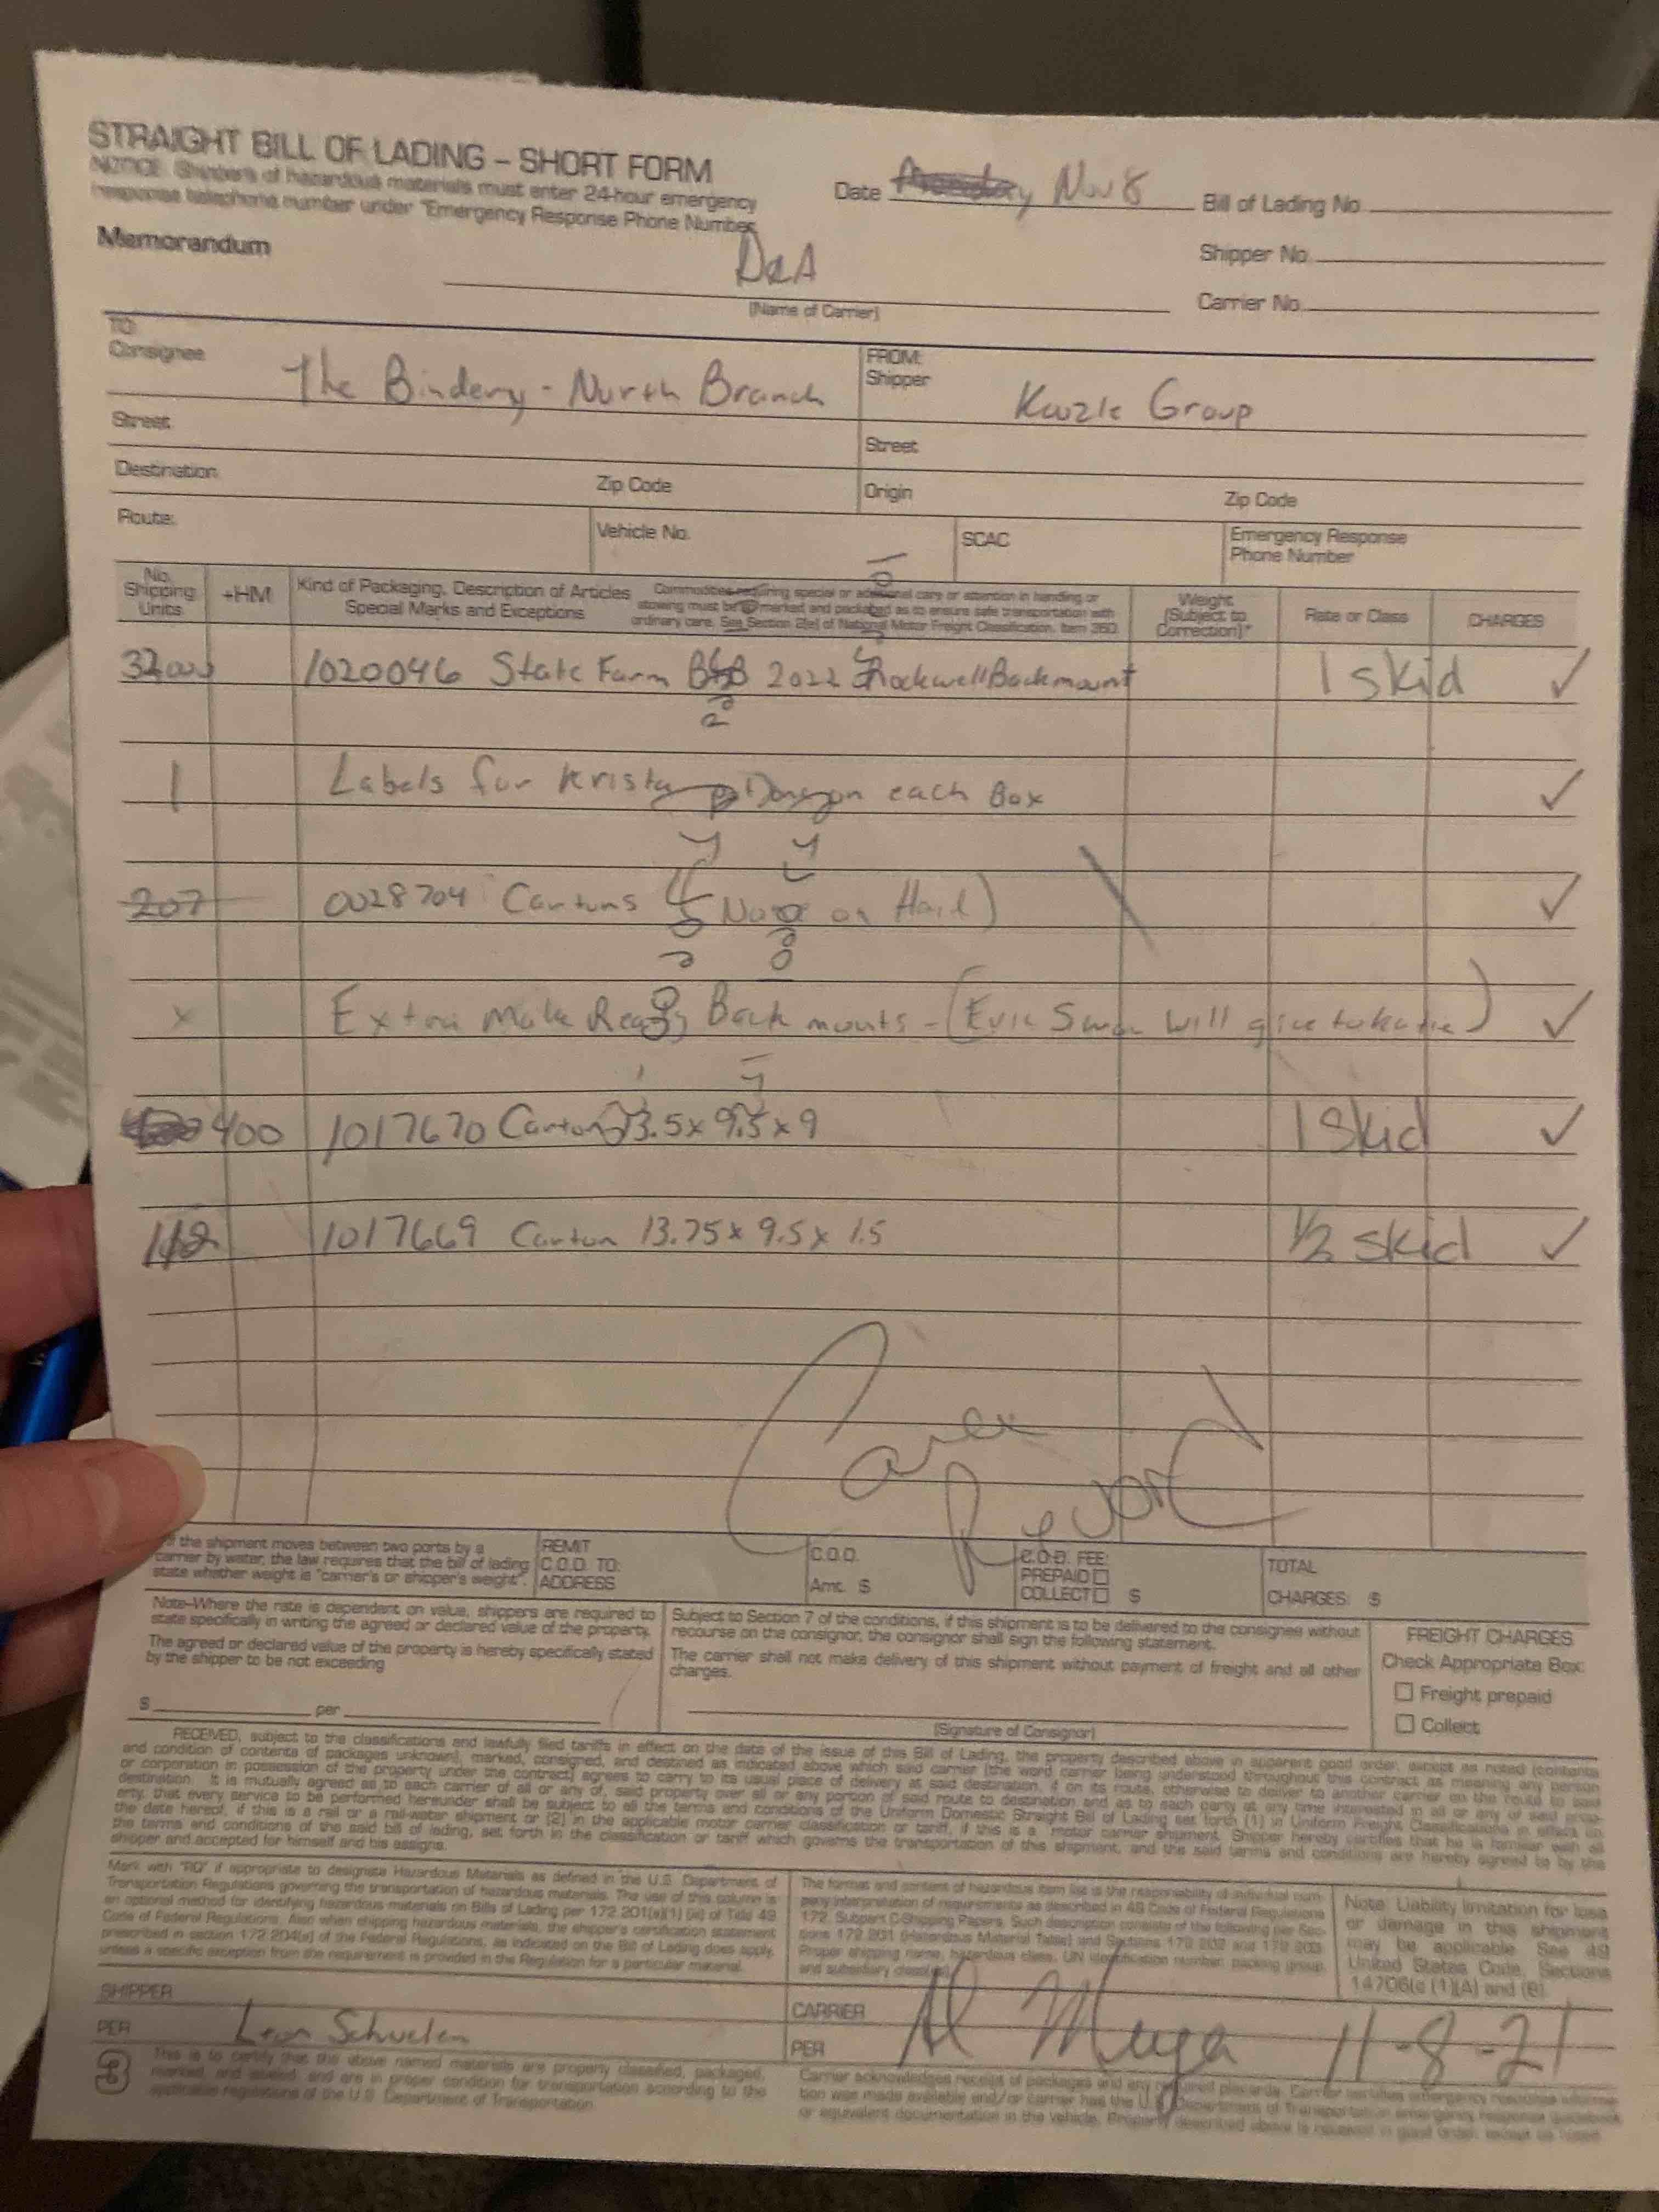 STRAIGHT BILL OF LADING – SHORT FORM
NOTICE: Shippers of hazardous materials must enter 24-hour emergency
response telephone number under "Emergency Response Phone Number."
Date Nov 8
Bill of Lading No.
Shipper No.
Carrier No.
Memorandum
D&A
(Name of Carrier)
TO:
Consignee The Bindery - North Branch
FROM:
Shipper Kwzle Group
Street
Street
Destination Zip Code
Origin Zip Code
Route:
Vehicle No.
SCAC
Emergency Response
Phone Number
No.
Shipping
Units
+HM
Kind of Packaging, Description of Articles
Special Marks and Exceptions
Commodities requiring special or additional care or attention in handling or
stowing must be so marked and packaged as to ensure safe transportation with
ordinary care. See Section 2(e) of National Motor Freight Classification, Item 360
Weight
(Subject to
Correction)*
Rate or Class
CHARGES
32000 1020046 State Farm 2022 Rockwell Backmount 1 skid ✓
1 Labels for on each Box ✓
207 0028704 Cartons (None on Hand) ✓
x Extra Make Ready Back mounts - (Eric will give to) ✓
400 1017670 Carton 13.5 x 9.5 x 9 1 Skid ✓
112 1017669 Carton 13.75 x 9.5 x 1.5 1/2 skid ✓
If the shipment moves between two ports by a
carrier by water, the law requires that the bill of lading
state whether weight is "carrier's or shipper's weight".
REMIT
C.O.D. TO:
ADDRESS
C.O.D.
Amt. $
C.O.D. FEE:
PREPAID
COLLECT $
TOTAL
CHARGES: $
Note–Where the rate is dependent on value, shippers are required to
state specifically in writing the agreed or declared value of the property.
The agreed or declared value of the property is hereby specifically stated
by the shipper to be not exceeding
$ per
Subject to Section 7 of the conditions, if this shipment is to be delivered to the consignee without
recourse on the consignor, the consignor shall sign the following statement.
The carrier shall not make delivery of this shipment without payment of freight and all other
charges.
(Signature of Consignor)
FREIGHT CHARGES
Check Appropriate Box:
Freight prepaid
Collect
RECEIVED, subject to the classifications and lawfully filed tariffs in effect on the date of the issue of this Bill of Lading, the property described above in apparent good order, except as noted (contents
and condition of contents of packages unknown), marked, consigned, and destined as indicated above which said carrier (the word carrier being understood throughout this contract as meaning any person
or corporation in possession of the property under the contract) agrees to carry to its usual place of delivery at said destination, if on its route, otherwise to deliver to another carrier on the route to said
destination. It is mutually agreed as to each carrier of all or any of, said property over all or any portion of said route to destination and as to each party at any time interested in all or any of said prop-
erty, that every service to be performed hereunder shall be subject to all the terms and conditions of the Uniform Domestic Straight Bill of Lading set forth (1) in Uniform Freight Classifications in effect on
the date hereof, if this is a rail or a rail-water shipment or (2) in the applicable motor carrier classification or tariff, if this is a motor carrier shipment. Shipper hereby certifies that he is familiar with all
the terms and conditions of the said bill of lading, set forth in the classification or tariff which governs the transportation of this shipment, and the said terms and conditions are hereby agreed to by the
shipper and accepted for himself and his assigns.
Mark with "RQ" if appropriate to designate Hazardous Materials as defined in the U.S. Department of
Transportation Regulations governing the transportation of hazardous materials. The use of this column is
an optional method for identifying hazardous materials on Bills of Lading per 172.201(a)(1)(iii) of Title 49
Code of Federal Regulations. Also when shipping hazardous materials, the shipper's certification statement
prescribed in section 172.204(a) of the Federal Regulations, as indicated on the Bill of Lading does apply,
unless a specific exception from the requirement is provided in the Regulation for a particular material.
The format and content of hazardous item list is the responsibility of individual com-
pany interpretation of requirements as described in 49 Code of Federal Regulations
172, Subpart C-Shipping Papers. Such description consists of the following per Sec-
tions 172.201 (Hazardous Material Table) and Sections 172.202 and 172.203:
Proper shipping name, hazardous class, UN identification number, packing group,
and subsidiary class(es).
Note: Liability limitation for loss
or damage in this shipment
may be applicable. See 49
United States Code, Sections
14706(c)(1)(A) and (B).
SHIPPER
PER
CARRIER
PER Al 11-8-21
3
This is to certify that the above named materials are properly classified, packaged,
marked, and labeled, and are in proper condition for transportation according to the
applicable regulations of the U.S. Department of Transportation.
Carrier acknowledges receipt of packages and any required placards. Carrier certifies emergency response informa-
tion was made available and/or carrier has the U.S. Department of Transportation emergency response guidebook
or equivalent documentation in the vehicle. Property described above is received in good order, except as noted.